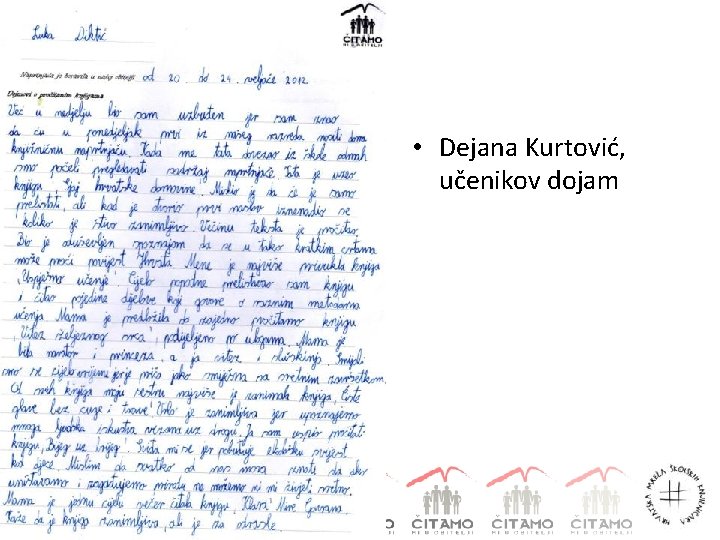 Luka Diktić
ČITAMO
Naprtnjača je boravila u našoj obitelji od 20. do 24. veljače 2012
Dojmovi o pročitanim knjigama
Već u nedjelju bio sam uzbuđen jer sam znao
da ću u ponedjeljak prvi iz našeg razreda nositi doma
knjižničnu naprtnjaču. Kada me tata dovezao iz škole odmah
smo počeli pregledavati sadržaj naprtnjače. Tata je uzeo
knjigu Sjaj hrvatske domovine. Mislio je da će je samo
prelistati, ali kad je otvorio prvi naslov iznenadio se
koliko je štivo zanimljivo. Većinu teksta je pročitao.
Bio je oduševljen spoznajom da se u tako kratkim crtama
može proći povijest Hrvata. Mene je najviše privukla knjiga
„Uspješno učenje". Cijelo popodne prelistavao sam knjigu
i čitao pojedine dijelove koji govore o raznim metodama
učenja. Mama je predložila da zajedno pročitamo knjigu
„Vitez željeznog srca" podijeljeno po ulogama. Mama je
bila narator i princeza, a ja vitez i sluškinja. Smijali
smo se cijelo vrijeme jer je priča jako smiješna sa sretnim završetkom.
Od svih knjiga moju sestru najviše je zanimala knjiga „Čiste
glave bez cuge i trave". Vrlo je zanimljiva jer upoznajemo
mnoga ljudska iskustva vezana uz drogu. Ja sam uspio pročitati
knjigu „Bijeg uz snijeg". Sviđa mi se jer pobuđuje ekološku svijest
kod djece. Mislim da svatko od nas mora znati da ako
uništavamo i zagađujemo prirodu ne možemo ni mi živjeti sretno.
Mama je jednu cijelu večer čitala knjigu
Kaže da je knjiga zanimljiva, ali je za odrasle.
• Dejana Kurtović,
učenikov dojam
ČITAMO
ČITAMO
ČITAMO
HRVATSKA MREŽA ŠKOLSKIH KNJIŽNIČARA